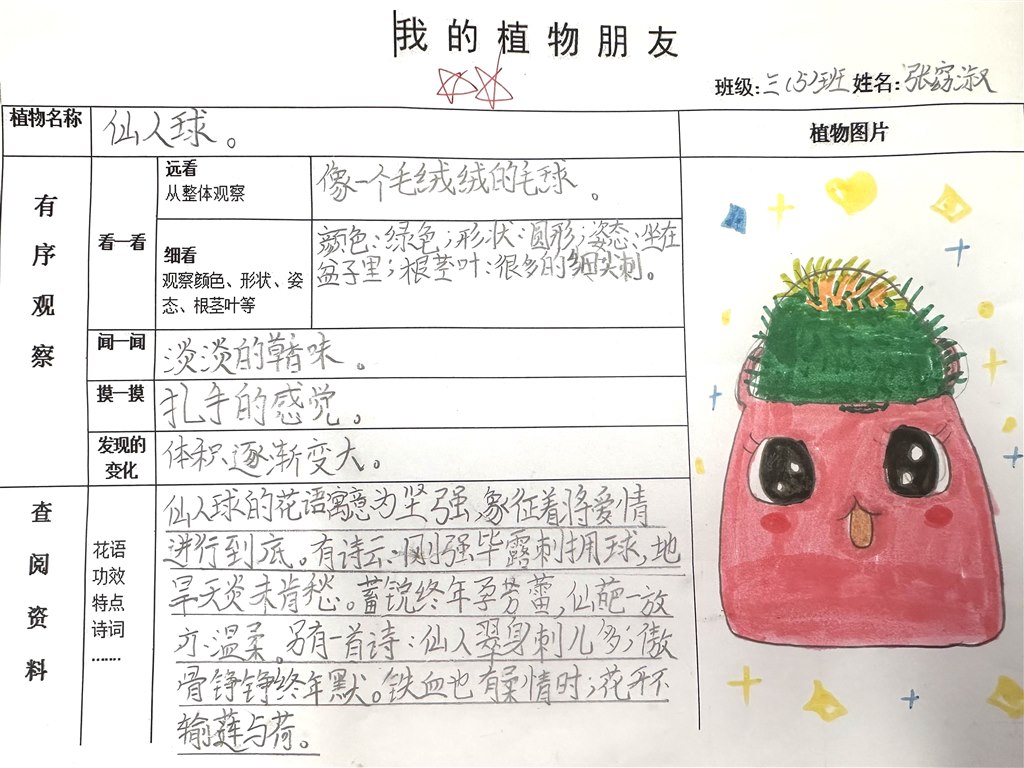 我的植物朋友
班级:三(5)班 姓名:张窈淑
植物名称
仙人球。
植物图片
有序观察
看一看
远看
从整体观察
像一个毛绒绒的毛球。
细看
观察颜色、形状、姿
态、根茎叶等
颜色:绿色;形状:圆形;姿态:坐在
盆子里;根茎叶:很多的细尖刺。
闻一闻
淡淡的草香味。
摸一摸
扎手的感觉。
发现的
变化
体积逐渐变大。
查阅资料
花语
功效
特点
诗词
……
仙人球的花语寓意为坚强,象征着将爱情
进行到底。有诗云:刚强毕露刺拥球,地
旱天炎未肯愁。蓄锐终年孕芳蕾,仙葩一放
亦温柔。另有一首诗:仙人翠身刺儿多;傲
骨铮铮终年默。铁血也有柔情时;花开不
输莲与荷。